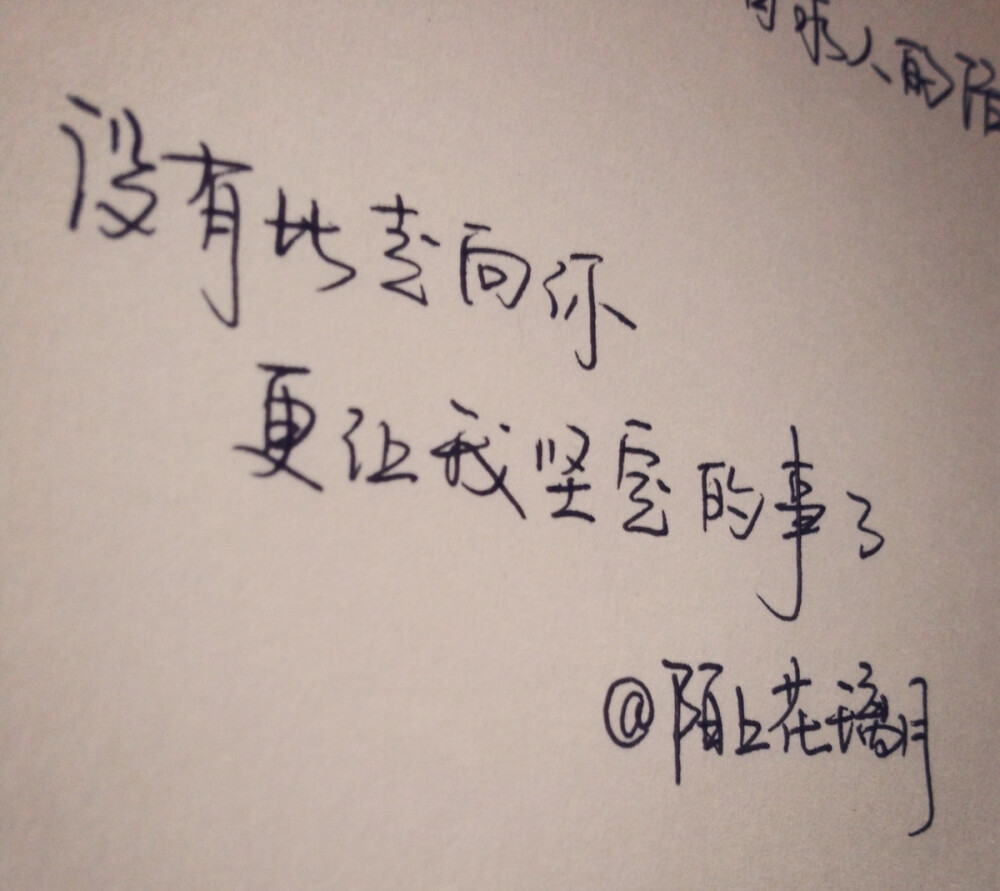 人的陌
没有比走向你
更让我坚定的事了
@陌上花璃月